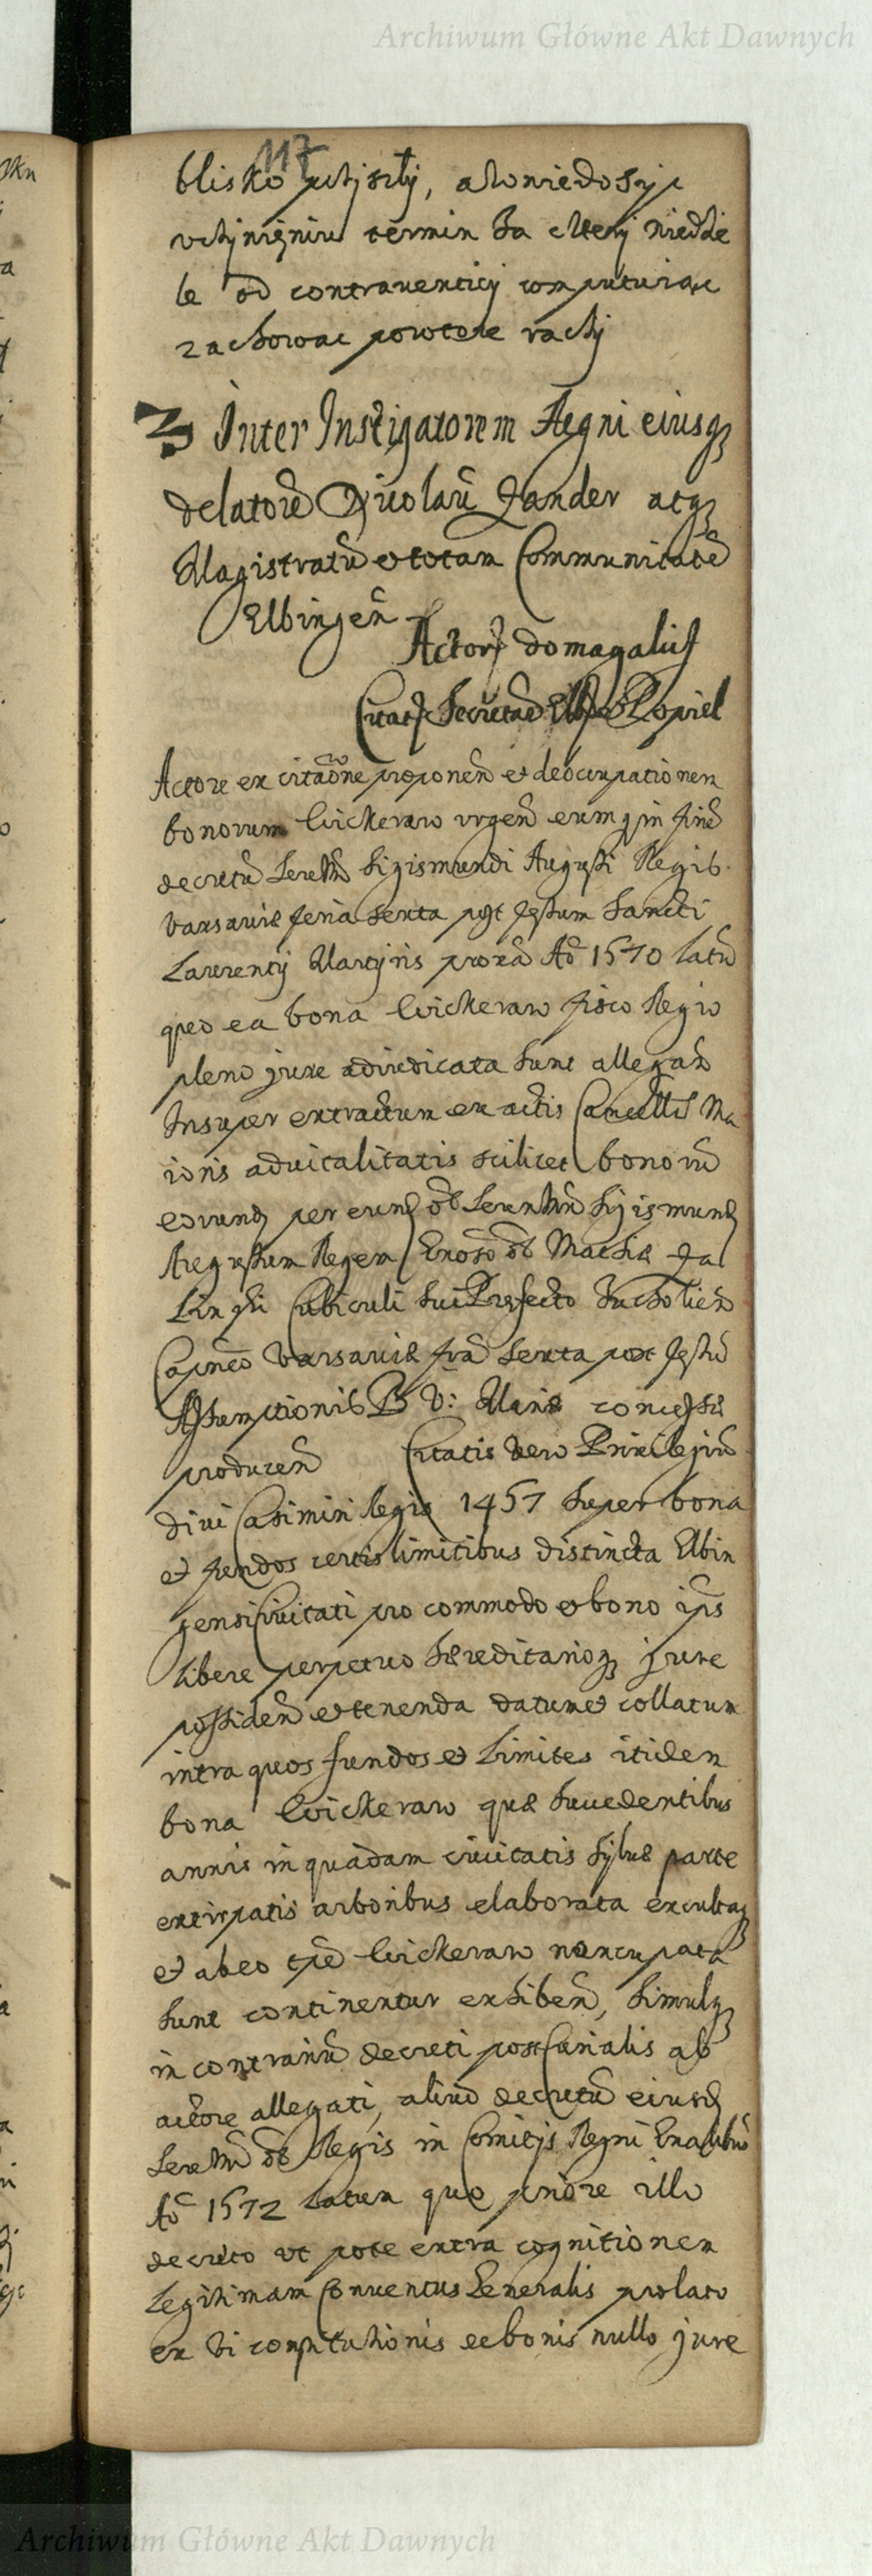 Archiwum Główne Akt Dawnych
117
blisko
vchijnięniu termin za cztery niedzie
le od contrauenticij computuiąc
zachowac powtore rachy
3 Inter Instigatorem Regni eiusq3
delatorē Nicolaū Zander atq3
Magistratū et totam Communitatē
Elbingen̄
Actoris domagalius
Citatis Secretar̄ Popiel
Actore ex citaōne proponen̄ et de occupationem
bonorum Wickeraw vrgen̄ eumq in finē
decretū Seren̄ Sigismundi Augusti Regis
Varsauiæ feria sexta post festum Sancti
Laurentij Martyris proxa Aō 1570 Latū
quo ea bona Wickeraw fisco Regio
pleno jure adiudicata sunt allegan̄
Insuper extractum ex actis Cancell Ma
ioris aduitalitatis scilicet bonorū
eorund per eund ol Seren Sigismund
Augustum Regem Genoso ol Mathiæ Za
linski Cubiculi sui Præfecto Tucholien̄
Capneo Varsauiæ fra sexta post festū
Assumptionis B V: Mariæ concessū
producen̄ Citatis vero Priuilegiū
diui Casimiri Regis 1457 super bona
et fundos certis limitibus distincta Elbin
gensi Ciuitati pro commodo et bono ip̄s
libere perpetuo hæreditarioq3 jure
possiden̄ et tenenda datum et collatum
intra quos fundos et Limites itidem
bona Wickeraw quæ succedentibus
annis in quadam ciuitatis syluæ parte
extirpatis arboribus elaborata excultaq3
et ab eo tpē Wickeraw nuncupata
sunt continentur exhiben̄, simulq3
in contrariū decreti postCurialis ab
actore allegati, aliud decretū eiusd
Seren ol Regis in Comitijs Regni Gnalibus
Aō 1572 Latum quo priore illo
decreto vt pote extra cognitionem
legitimam Conuentus Generalis prolato
ex vi constitutionis ee bonis nullo jure
Archiwum Główne Akt Dawnych